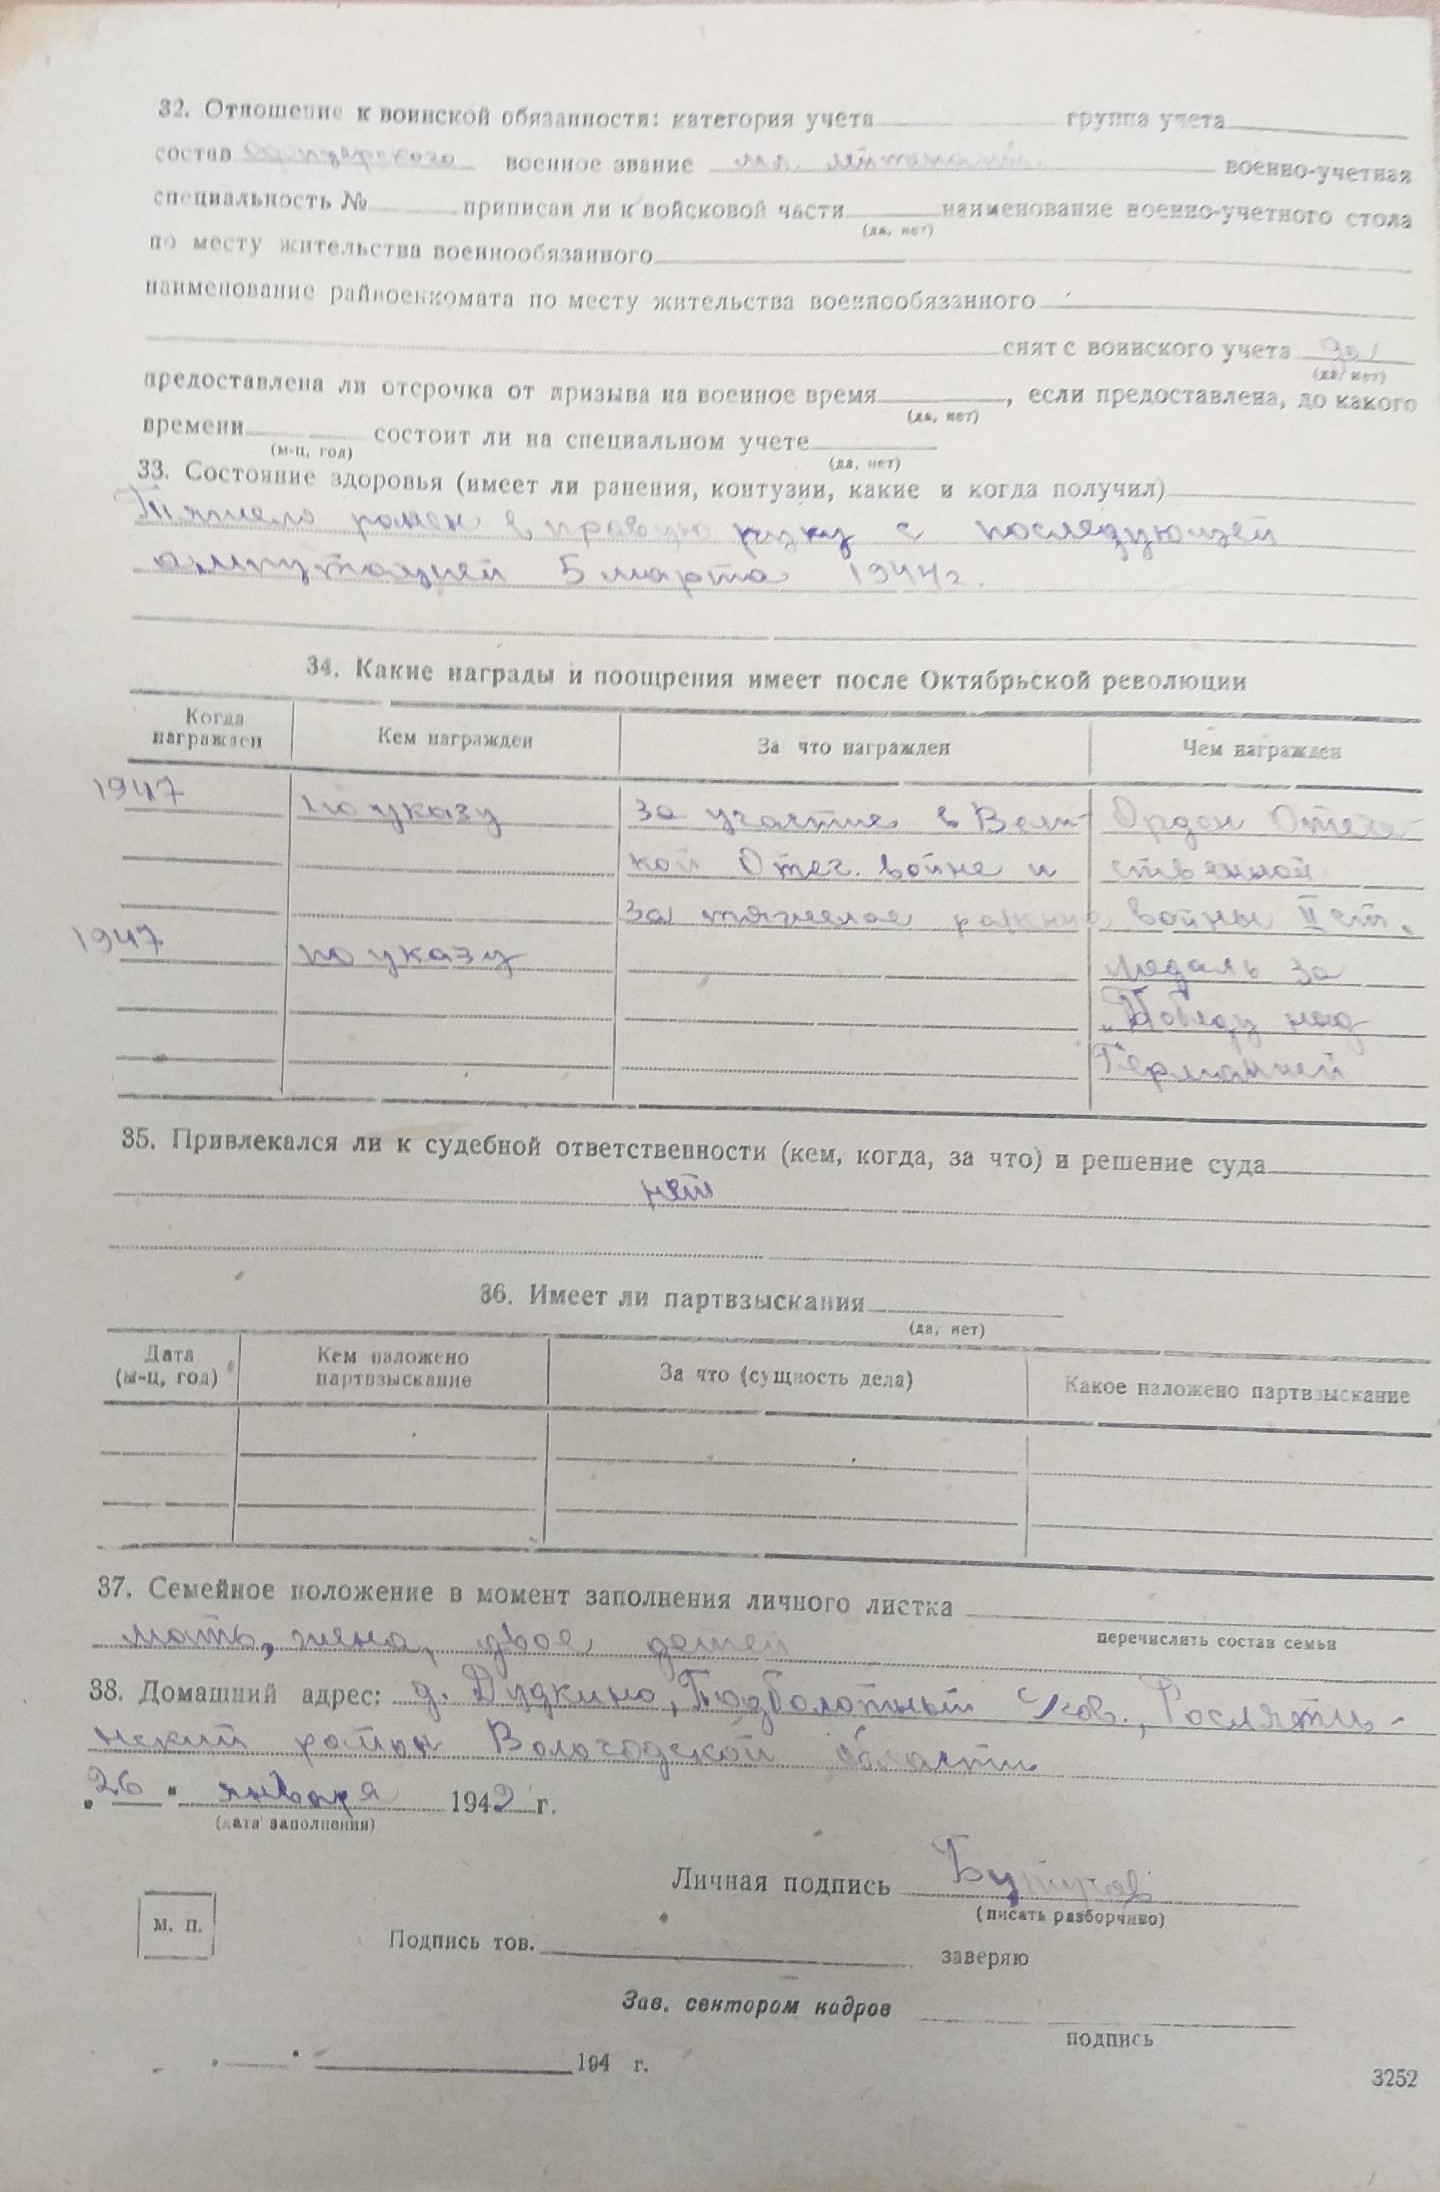 32. Отношение к воинской обязанности: категория учета группа учета
состав офицерского военное звание мл. лейтенант военно-учетная
специальность № приписан ли к войсковой части наименование военно-учетного стола
(да, нет)
по месту жительства военнообязанного
наименование райвоенкомата по месту жительства военнообязанного
снят с воинского учета да
(да, нет)
предоставлена ли отсрочка от призыва на военное время , если предоставлена, до какого
(да, нет)
времени состоит ли на специальном учете
(м-ц, год) (да, нет)
33. Состояние здоровья (имеет ли ранения, контузии, какие и когда получил)
Тяжело ранен в правую руку с последующей
ампутацией 5 марта 1944 г.
34. Какие награды и поощрения имеет после Октябрьской революции
Когда награжден Кем награжден За что награжден Чем награжден
1947 по указу за участие в Вели- Орден Отече-
кой Отеч. войне и ственной
за тяжелое ранение войны II ст.
1947 по указу медаль за
„Победу над
Германией
35. Привлекался ли к судебной ответственности (кем, когда, за что) и решение суда
нет
36. Имеет ли партвзыскания
(да, нет)
Дата (м-ц, год) Кем наложено партвзыскание За что (сущность дела) Какое наложено партвзыскание
37. Семейное положение в момент заполнения личного листка
перечислить состав семьи
мать, жена, двое детей
38. Домашний адрес: д. Дудкино, Подболотный с/сов., Росляти-
нский район Вологодской области
„26" января 1942 г.
(дата заполнения)
Личная подпись
(писать разборчиво)
м. п.
Подпись тов. заверяю
Зав. сектором кадров
подпись
194 г.
3252